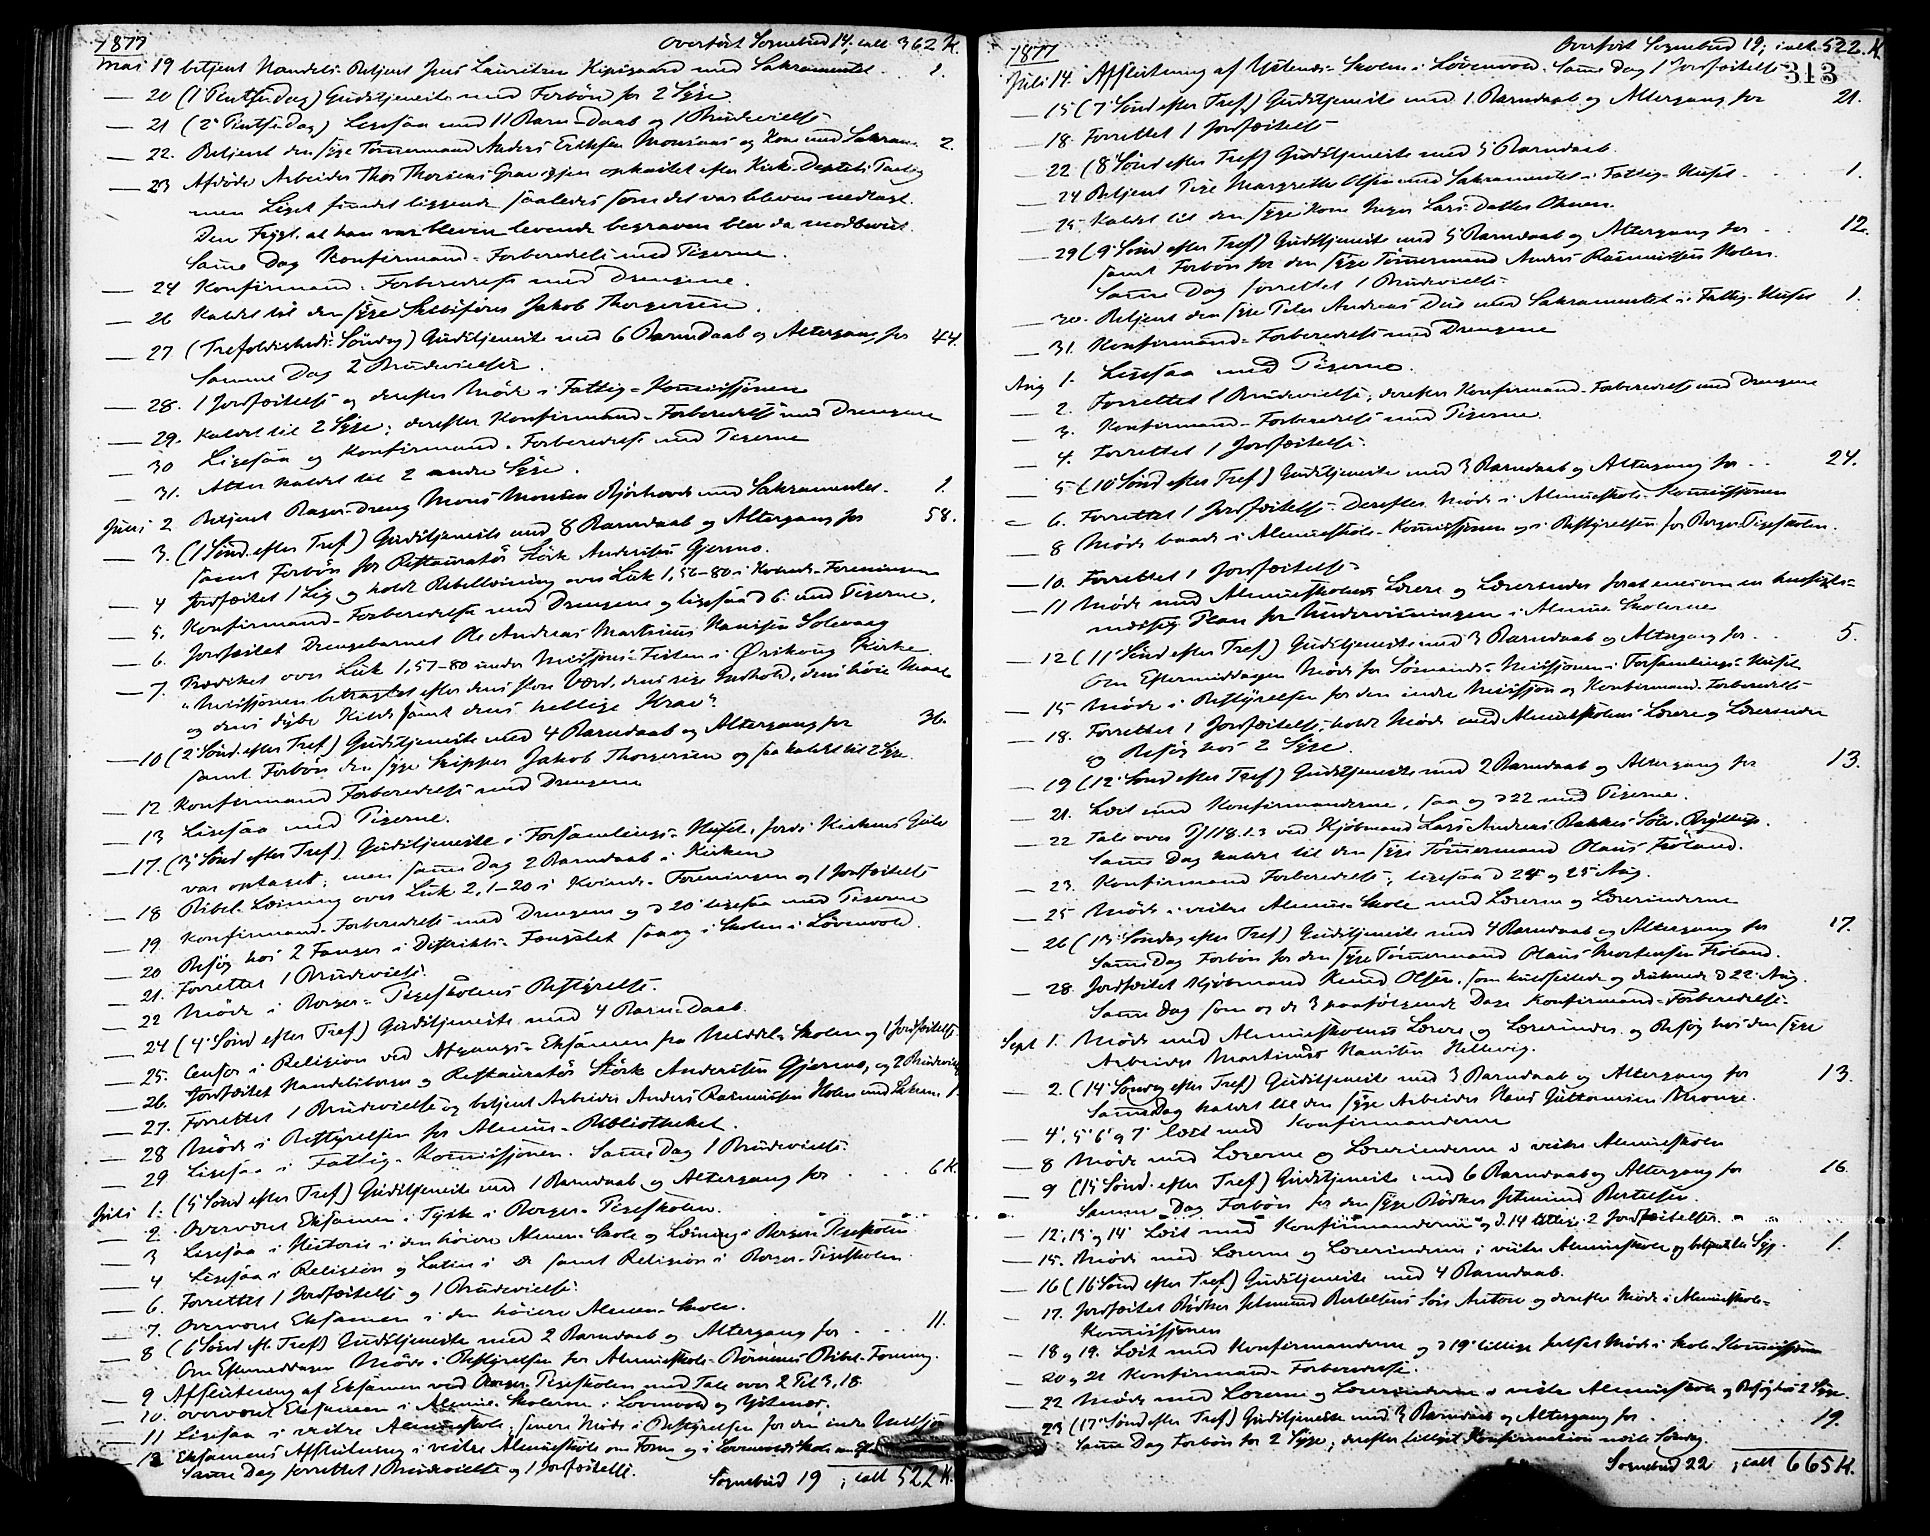 1877 Overført Sognebud 14, ialt 362 K.
Mai 19 betjent Handels-Betjent Jens Lauritzen Kipisgaard med Sakramentet. 1.
— 20 (1 Pintsedag) Gudstjeneste med Forbøn for 2 Syge
— 21 (2 Pintsedag) Ligesaa med 11 Barn-Daab og 1 Brudevielse
— 22. Betjent den syge Tømmermand Anders Eriksen Monsaas og Kone med Sakram. 2.
— 23 Afdøde Arbeider Thor Thorsens Grav igjen opkastet efter Kirke-Depts Paalæg
men Liget fundet liggende saaledes som det var bleven nedlagt.
Den Frygt, at han var bleven levende begraven blev da modbevist.
Samme Dag Konfirmand-Forberedelse med Pigerne.
— 24 Konfirmand-Forberedelse med Drengene.
— 26 Kaldet til den syge Skibsfører Jakob Thorgersen.
— 27 (Trefoldigheds-Søndag) Gudstjeneste med 6 Barndaab og Altergang for 44.
Samme Dag 2 Brudevielser.
— 28. 1 Jordfæstelse og derefter Møde i Fattig-Kommissjonen
— 29. Kaldet til 2 Syge; derefter Konfirmand-Forberedelse med Drengene
— 30 Ligesaa og Konfirmand-Forberedelse med Pigerne
— 31. Atter kaldet til 2 andre Syge.
Juni 2 Betjent Bager-Dreng Mons Monsen Bjørhovde med Sakramentet. 1.
— 3. (1 Sønd. efter Tref) Gudstjeneste med 8 Barndaab og Altergang for 58.
samt Forbøn for Restauratør Stórk Andersen Gjermo.
— 4 Jordfæstet 1 Lig og holdt Bibellæsning over Luk 1,56-80 i Kvinde-Foreningen
— 5. Konfirmand-Forberedelse med Drengene og ligesaa d 6. med Pigerne.
— 6. Jordfæstet Drengebarnet Ole Andreas Martinus Hansen Solevaag
— 7. Prædiket over Luk 1,57-80 under Missjons-Festen i Ørskoug Kirke
"Missjonen betragtet efter dens store Værd, dens rige Indhold, dens høie Maal
og dens dybe Kilde samt dens hellige Krav".
— 10 (2 Sønd. efter Tref) Gudstjeneste med 4 Barndaab og Altergang for 36.
samt Forbøn den syge Skipper Jakob Thorgersen og saa kaldet til 2 Syge.
— 12 Konfirmand Forberedelse med Drengene
— 13 Ligesaa med Pigerne.
— 17. (3 Sønd efter Tref) Gudstjeneste i Forsamlings-Huset, fordi Kirkens Gulv
var optaget; men samme Dag 2 Barndaab i Kirken
— 18 Bibel-Læsning over Luk 2,1-20 i Kvinde-Foreningen og 1 Jordfæstelse
— 19. Konfirmand-Forberedelse med Drengene og d 20 ligesaa med Pigerne
— 20 Besøg hos 2 Fanger i Distrikts-Fængslet saa og i Skolen i Løvenvold.
— 21. Forrettet 1 Brudevielse.
— 22 Møde i Borger-Pigeskolens Bestyrelse.
— 24 (4 Sønd efter Tref) Gudstjeneste med 4 Barn-Daab.
— 25. Censor i Religion ved Afgangs-Eksamen fra Middel-Skolen og 1 Jordfæstelse.
— 26. Jordfæstet Handelsborger og Restauratør Stórk Andersen Gjermo, og 2 Brudevielser
— 27. Forrettet 1 Brudevielse og betjent Arbeider Anders Rasmussen Holen med Sakram. 1.
— 28 Møde i Bestyrelsen for Almue-Bibliotheket.
— 29 Ligesaa i Fattig-Kommissjonen. Samme Dag 1 Brudevielse.
Juli 1. (5 Sønd efter Tref) Gudstjeneste med 1 Barndaab og Altergang for 6 K.
— 2. Overværet Eksamen i Tysk i Borger-Pigeskolen.
— 3 Ligesaa i Historie i den høiere Almen-Skole og Læsning i Borger-Pigeskolen
— 4 Ligesaa i Religion og Latin i do samt Religion i Borger-Pigeskolen
— 6. Forrettet 1 Jordfæstelse og 1 Brudevielse.
— 7. Overværet Eksamen i den høiere Almen-Skole.
— 8 (6 Sønd eft Tref) Gudstjeneste med 2 Barndaab og Altergang for 11.
Om Eftermiddagen Møde i Bestyrelsen for Almueskole-Børnenes Bibel-Forening.
— 9 Afslutning af Eksamen ved Borger-Pigeskolen med Tale over 2 Pet 3,18.
— 10. overværet Eksamen i Almue-Skolerne i Løvenvold og Ystenes.
— 11 Ligesaa i vestre Almueskole, senere Møde i Bestyrelsen for den indre Missjon
— 13 Eksamens Afslutning i vestre Almueskole om Form. og i Løvenvolds Skole om
Samme Dag forrettet 1 Brudevielse og 1 Jordfæstelse.
Sognebud 19, ialt 522 K.
1877 Overført Sognebud 19, ialt 522. K
313
Juli 14. Afslutning af Ystenes-Skolen i Løvenvold. Samme Dag 1 Jordfæstelse
— 15 (7 Sønd efter Tref) Gudstjeneste med 1. Barndaab og Altergang for 21.
— 18. Forrettet 1 Jordfæstelse
— 22 (8 Sønd efter Tref) Gudstjeneste med 5 Barndaab.
— 24 Betjent Pige Margrethe Olsen med Sakramentet i Fattig-Huset 1.
— 25. Kaldet til den syge Kone Inger Lars-Datter
— 29 (9 Sønd efter Tref) Gudstjeneste med 5 Barndaab og Altergang for 12.
samt Forbøn for den syge Tømmermand Anders Rasmussen Holen.
Samme Dag forrettet 1 Brudevielse.
— 30. Betjent den syge Peter Andreas med Sakramentet i Fattig-Huset 1.
— 31. Konfirmand-Forberedelse med Drengene
Aug 1. Ligesaa med Pigerne.
— 2. Forrettet 1 Brudevielse; derefter Konfirmand-Forberedelse med Drengene
— 3. Konfirmand-Forberedelse med Pigerne.
— 4. Forrettet 1 Jordfæstelse.
— 5 (10 Sønd efter Tref) Gudstjeneste med 3 Barndaab og Altergang for 24.
— 6. Forrettet 1 Jordfæstelse. Derefter Møde i Almueskole-Kommissjonen
— 8 Møde baade i Almueskole-Kommissjonen og i Bestyrelsen for Borger-Pigeskolen.
— 10. Forrettet 1 Jordfæstelse
— 11 Møde med Almueskolens Lærere og Lærerinder forat enes om en hensigts-
mæssig Plan for Undervisningen i Almue-Skolerne
— 12 (11 Sønd efter Tref) Gudstjeneste med 3 Barndaab og Altergang for 5.
Om Eftermiddagen Møde for Sømands-Missjonen i Forsamlings-Huset
— 15 Møde i Bestyrelsen for den indre Missjon og Konfirmand-Forberedelse
— 18. Forrettet 1 Jordfæstelse, holdt Møde med Almueskolens Lærere og Lærerinder
og Besøg hos 2 Syge.
— 19 (12 Sønd efter Tref) Gudstjeneste med 2 Barndaab og Altergang for 13.
— 21. Læst med Konfirmanderne, saa og d 22 med Pigerne.
— 22 Tale over 118.1.3 ved Kjøbmand Lars Andreas Bakkes Sølv-Bryllup.
Samme Dag kaldet til den syge Tømmermand Olaus Frøland.
— 23. Konfirmand Forberedelse; ligesaa d 24 og 25 Aug.
— 25 Møde i vestre Almue-Skole med Lærerne og Lærerinderne
— 26 (13 Søndag efter Tref) Gudstjeneste med 4 Barndaab og Altergang for 17.
Samme Dag Forbøn for den syge Tømmermand Olaus Mortensen Frøland.
— 28. Jordfæstet Kjøbmand Knud Olsen, som kuldseilede og druknede d 22 Aug.
Samme Dag som og de 3 paafølgende Dage Konfirmand-Forberedelse.
Sept 1. Møde med Almueskolens Lærere og Lærerinder og Besøg hos den syge
Arbeider Martinus Hansen Hellevig.
— 2. (14 Søndag efter Tref) Gudstjeneste med 3 Barndaab og Altergang for 13.
Samme Dag kaldet til den syge Arbeider Hans Guttormsen
— 4', 5' 6' og 7' læst med Konfirmanderne
— 8 Møde med Lærerne og Lærerinderne i vestre Almueskole
— 9 (15 Sønd. efter Tref) Gudstjeneste med 6 Barndaab og Altergang for 16.
Samme Dag Forbøn for den syge Bødker Jetmund Bertelsen.
— 12', 13' og 14' Læst med Konfirmanderne og d. 14 tillige 2 Jordfæstelser
— 15. Møde med Lærerne og Lærerinderne i vestre Almueskole og betjent 1 Syg. 1.
— 16 (16 Sønd efter Tref) Gudstjeneste med 4 Barndaab.
— 17. Jordfæstet Bødker Jetmund Bertelsens Søn Anton og derefter Møde i Almueskole-
Kommissjonen
— 18 og 19. Læst med Konfirmanderne og d 19' tillige Møde i Skole-Kommissjonen
— 20 og 21 Konfirmand-Forberedelse.
— 22 Møde med Lærerne og Lærerinderne i vestre Almueskole og Besøg hos 2 Syge.
— 23 (17 Sønd efter Tref) Gudstjeneste med 3 Barndaab og Altergang for 19.
Samme Dag Forbøn for 2 Syge; derefter tillyst Konfirmation næste Søndag.
Sognebud 22, ialt 665 K.